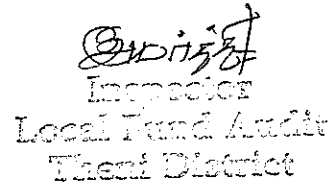 Inspector
Local Fund Audit
Theni District